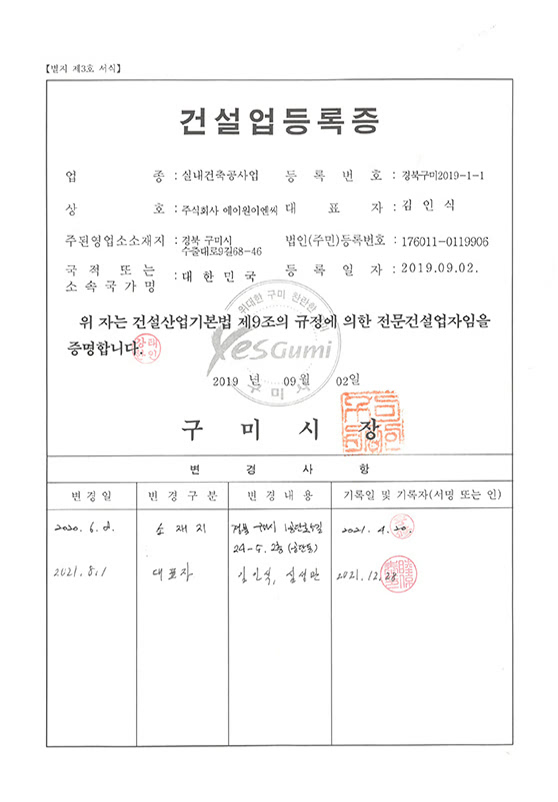 【별지 제3호 서식】
건설업등록증
업 종 : 실내건축공사업 등 록 번 호 : 경북구미2019-1-1
상 호 : 주식회사 에이원이엔씨 대 표 자 : 김 인 식
주된영업소소재지 : 경북 구미시 수출대로9길68-46 법인(주민)등록번호 : 176011-0119906
국 적 또 는 소 속 국 가 명 : 대 한 민 국 등 록 일 자 : 2019.09.02.
위대한 구미 찬란한
위 자는 건설산업기본법 제9조의 규정에 의한 전문건설업자임을
증명합니다.
Yes Gumi
구 미 시
2019 년 09월 02일
구 미 시 장
변 경 사 항
변 경 일 변 경 구 분 변 경 내 용 기록일 및 기록자(서명 또는 인)
2020. 6. 2. 소 재 지 경북 구미시 2021. 4. 20.
24-5, 2층 (공단동)
2021. 8. 1 대 표 자 김인식, 2021. 12. 28